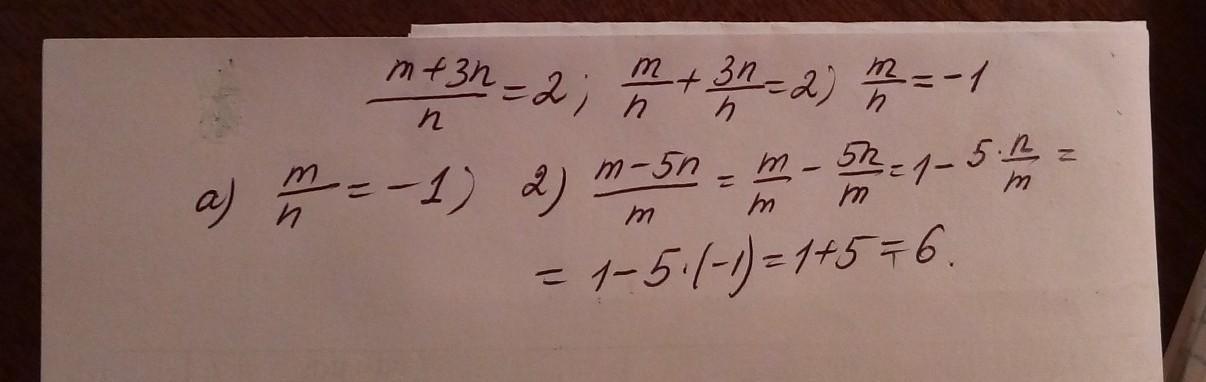 (m+3n)/n = 2; m/n + 3n/n = 2; m/n = -1
a) m/n = -1; 2) (m-5n)/m = m/m - 5n/m = 1 - 5·n/m =
= 1-5·(-1) = 1+5 = 6.